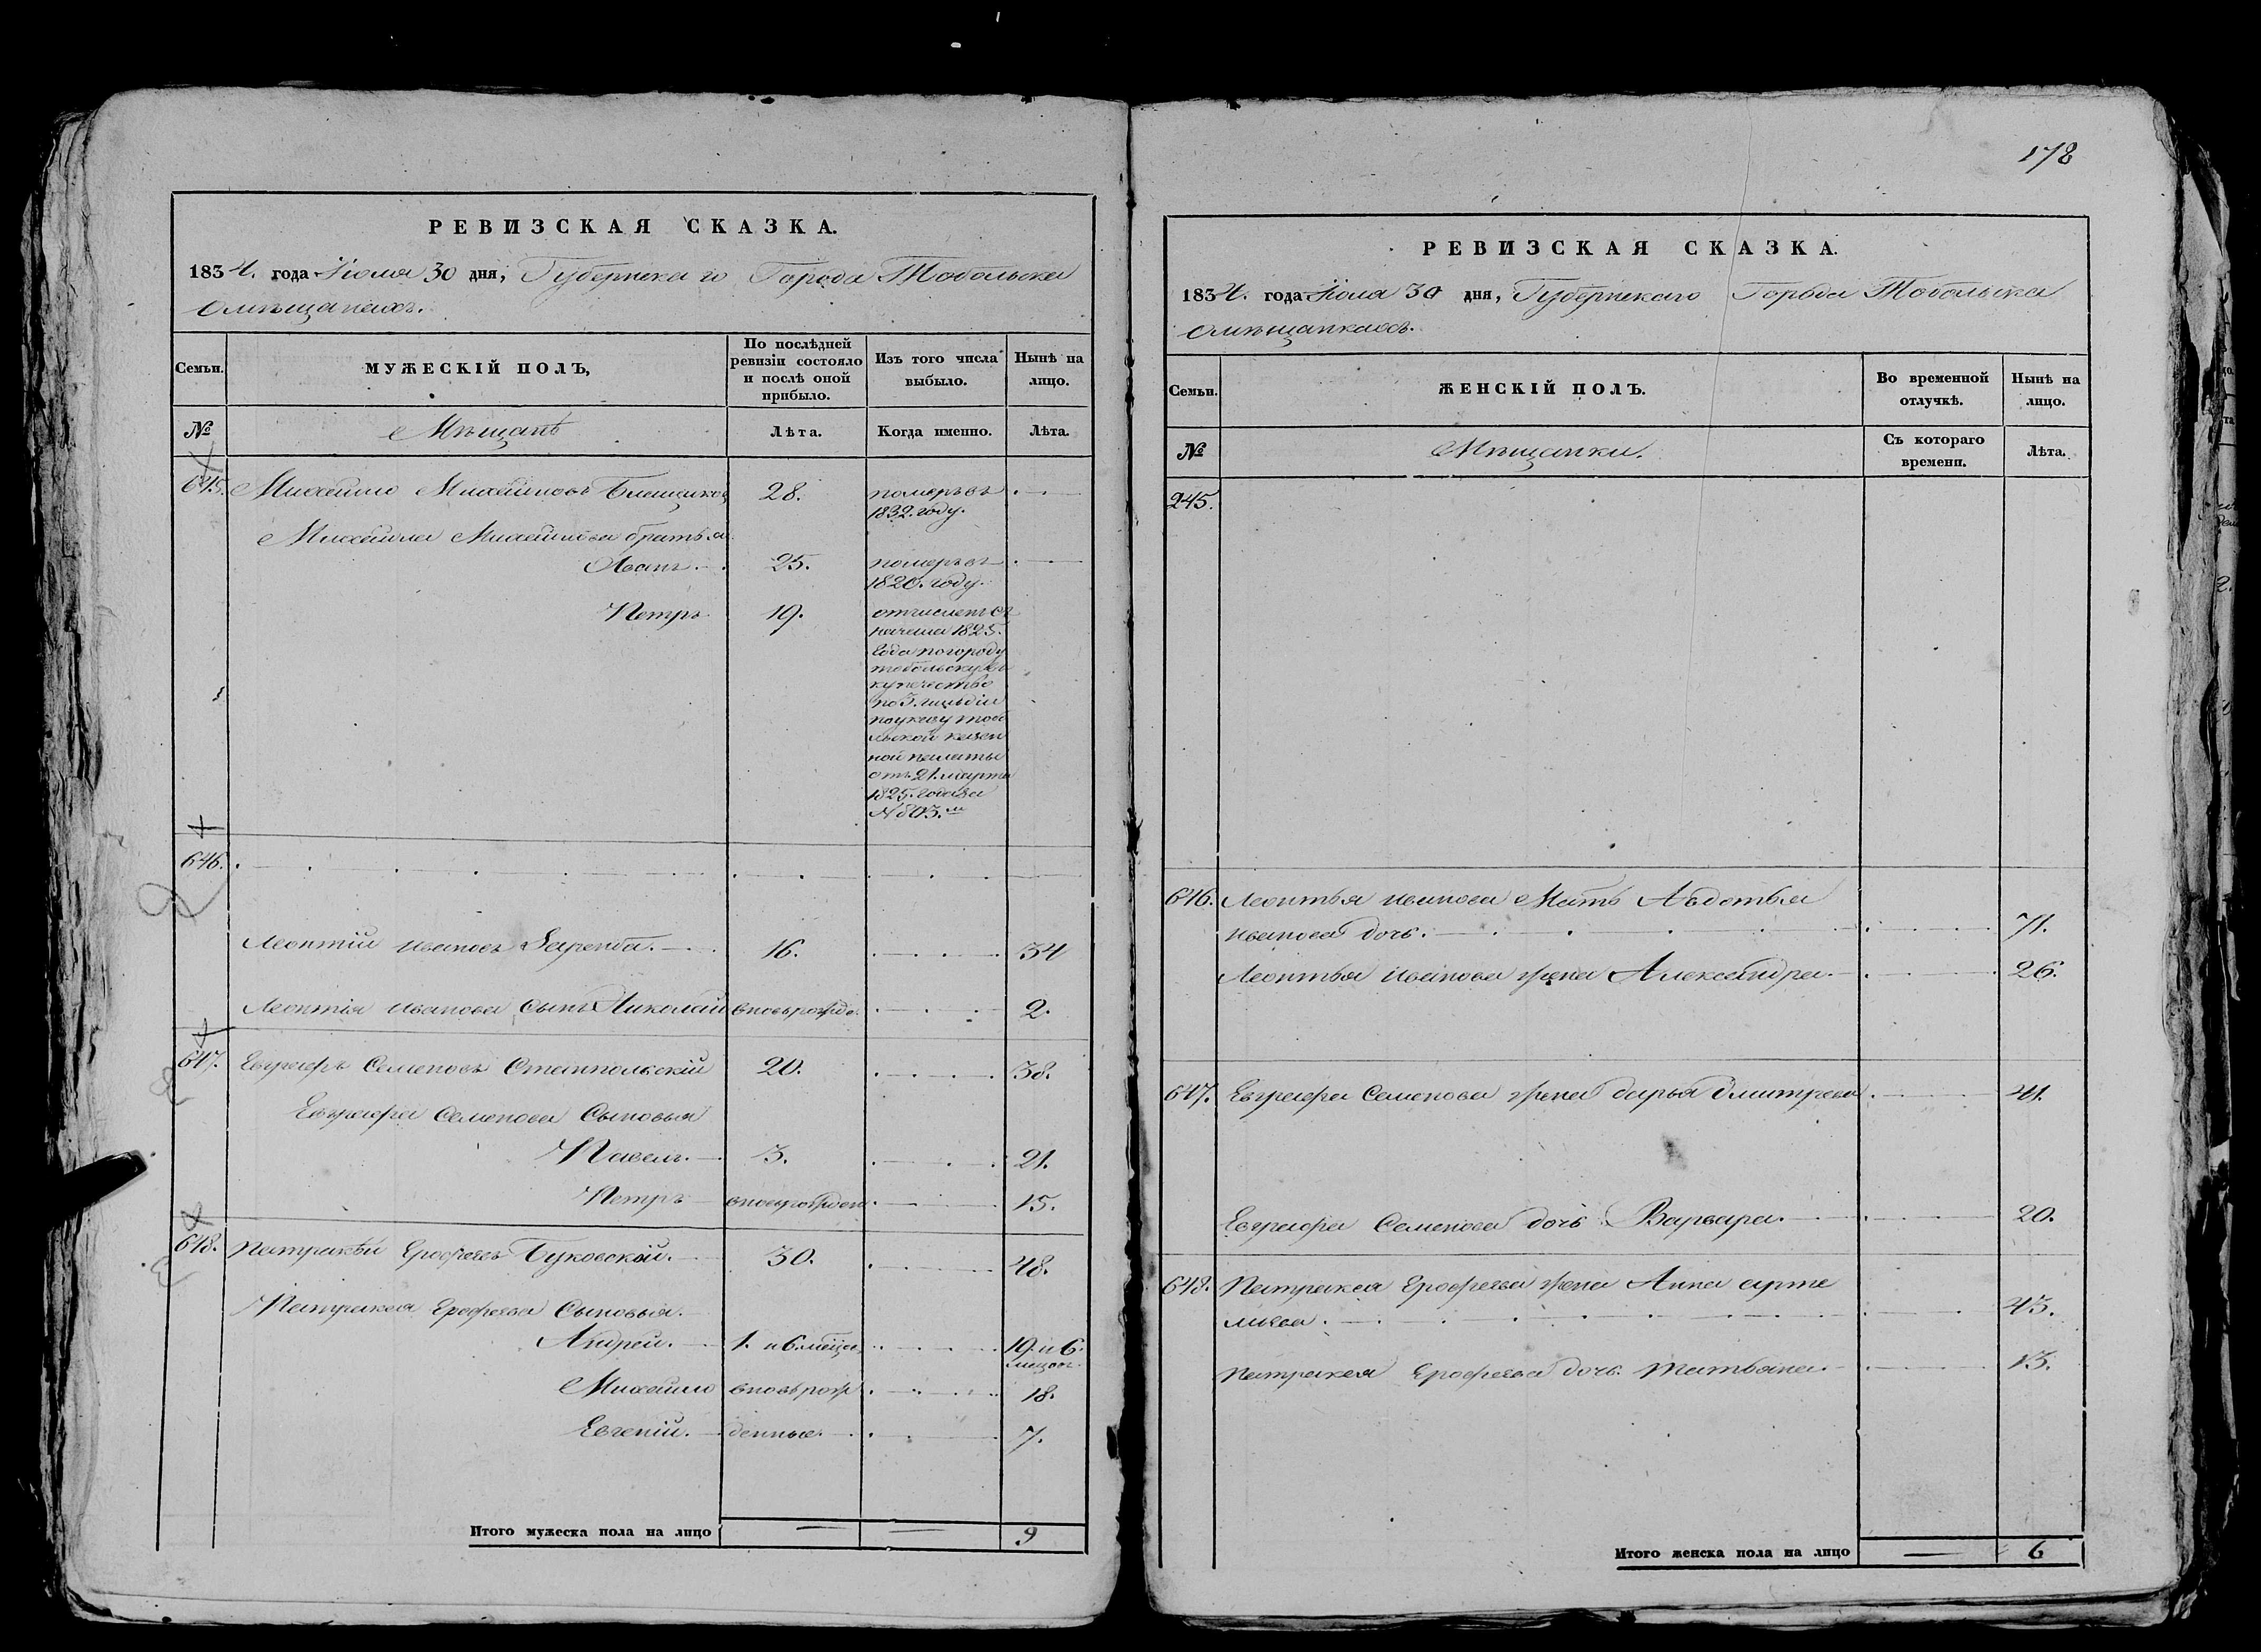 РЕВИЗСКАЯ СКАЗКА.
1834. года Июля 30 дня, Губернскаго Города Тобольска
Омѣщанахъ.
Семьи.
МУЖЕСКІЙ ПОЛЪ,
По послѣдней
ревизіи состояло
и послѣ оной
прибыло.
Изъ того числа
выбыло.
Нынѣ на
лицо.
№
Мѣщанѣ
Лѣта.
Когда именно.
Лѣта.
645. Михайло Михайловъ 28. померъ въ
1832. году.
Михайла Михайлова братья
Иванъ. 25. померъ въ
1820. году.
Петръ 19. отчисленъ съ
начала 1825.
года погороду
тобольску въ
купечество
по 3. гильдіи
поуказу тобо
льской казен
ной палаты
отъ 21. марта
1825. года за
646.
Леонтій Ивановъ 16. 34
Леонтія Иванова сынъ Николай вновьрожде. 2.
647. Евграфъ Семеновъ Станпольскій 20. 38.
Евграфа Семенова Сыновья
Павелъ. 3. 21.
Петръ вновьрожден 15.
648. Патракѣй Ерофѣевъ Буковскій. 30. 48.
Патракея Ерофѣева Сыновья.
Андрей. 1. и 6. мѣсце. 19. и 6.
мѣцовъ.
Михайло вновьрож 18.
Евгеній. денные. 7.
Итого мужеска пола на лицо 9
178
РЕВИЗСКАЯ СКАЗКА.
1834. года Июля 30 дня, Губернскаго Города Тобольска
Омѣщанкахъ.
Семьи.
ЖЕНСКІЙ ПОЛЪ.
Во временной
отлучкѣ.
Нынѣ на
лицо.
№
Мѣщанки.
Съ котораго
времени.
Лѣта.
245.
646. Леонтья Иванова Мать Авдотья
Иванова дочь. 71.
Леонтья Иванова жена Александра. 26.
647. Евграфа Семенова жена дарья Дмитрева 41.
Евграфа Семенова дочь Варвара. 20.
648. Патракея Ерофѣева жена Анна арте
мьева. 43.
Патракея Ерофѣева дочь. Татьяна. 13.
Итого женска пола на лицо 6